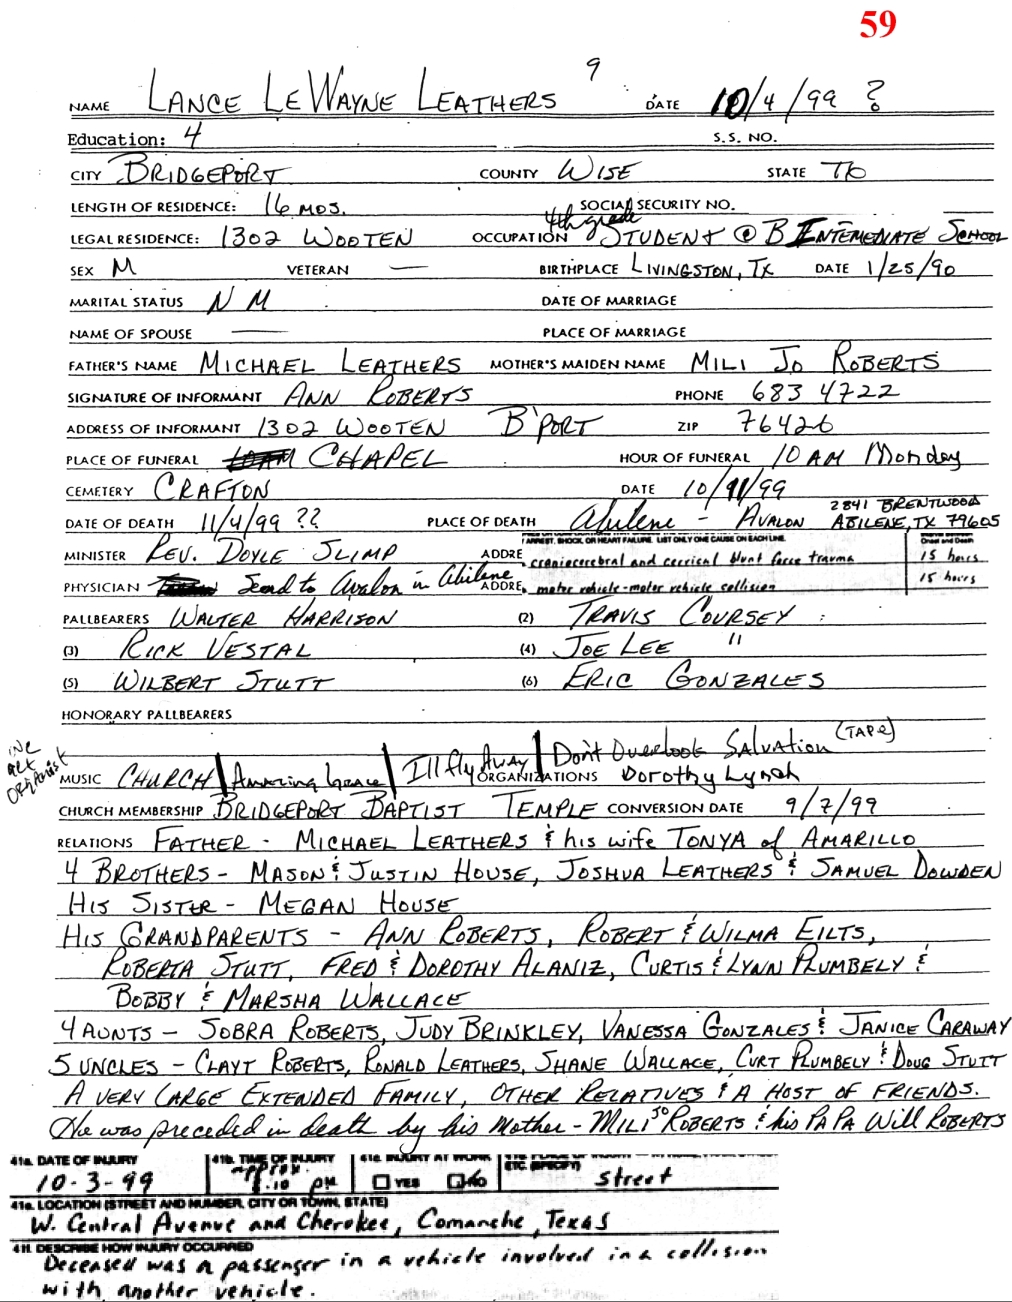 59
9
NAME LANCE LEWAYNE LEATHERS DATE 10/4/99 ?
Education: 4 S.S. NO.
CITY BRIDGEPORT COUNTY WISE STATE TX
LENGTH OF RESIDENCE: 16 MOS. SOCIAL SECURITY NO.
4th grade
LEGAL RESIDENCE: 1302 WOOTEN OCCUPATION STUDENT @ B INTEMEDIATE SCHOOL
SEX M VETERAN — BIRTHPLACE LIVINGSTON, TX DATE 1/25/90
MARITAL STATUS N M DATE OF MARRIAGE
NAME OF SPOUSE — PLACE OF MARRIAGE
FATHER'S NAME MICHAEL LEATHERS MOTHER'S MAIDEN NAME MILI JO ROBERTS
SIGNATURE OF INFORMANT ANN ROBERTS PHONE 683 4722
ADDRESS OF INFORMANT 1302 WOOTEN B'PORT ZIP 76426
PLACE OF FUNERAL CHAPEL HOUR OF FUNERAL 10 AM Monday
CEMETERY CRAFTON DATE 10/11/99
2841 BRENTWOOD
DATE OF DEATH 11/4/99 ?? PLACE OF DEATH Abilene - AVALON ABILENE, TX 79605
ARREST, SHOCK, OR HEART FAILURE. LIST ONLY ONE CAUSE ON EACH LINE. Onset and Death
MINISTER REV. DOYLE SLIMP ADDRE craniocerebral and cervical blunt force trauma 15 hours
PHYSICIAN Send to Avalon in Abilene ADDRE motor vehicle-motor vehicle collision 15 hours
PALLBEARERS WALTER HARRISON (2) TRAVIS COURSEY
(3) RICK VESTAL (4) JOE LEE "
(5) WILBERT STUTT (6) ERIC GONZALES
HONORARY PALLBEARERS
we get organist
MUSIC CHURCH | Amazing Grace | I'll fly AWAY | Don't Overlook Salvation (TAPE)
ORGANIZATIONS Dorothy Lynch
CHURCH MEMBERSHIP BRIDGEPORT BAPTIST TEMPLE CONVERSION DATE 9/7/99
RELATIONS FATHER - MICHAEL LEATHERS & his wife TONYA of AMARILLO
4 BROTHERS - MASON & JUSTIN HOUSE, JOSHUA LEATHERS & SAMUEL DOWDEN
HIS SISTER - MEGAN HOUSE
HIS GRANDPARENTS - ANN ROBERTS, ROBERT & WILMA EILTS,
ROBERTA STUTT, FRED & DOROTHY ALANIZ, CURTIS & LYNN PLUMBELY &
BOBBY & MARSHA WALLACE
4 AUNTS - SOBRA ROBERTS, JUDY BRINKLEY, VANESSA GONZALES & JANICE CARAWAY
5 UNCLES - CLAYT ROBERTS, RONALD LEATHERS, SHANE WALLACE, CURT PLUMBELY & DOUG STUTT
A VERY LARGE EXTENDED FAMILY, OTHER RELATIVES & A HOST OF FRIENDS.
He was preceded in death by his Mother - MILI JO ROBERTS & his PAPA Will ROBERTS
41a. DATE OF INJURY 41b. TIME OF INJURY 41c. INJURY AT WORK ETC. (SPECIFY)
10-3-99 approx. PM YES NO Street
41e. LOCATION (STREET AND NUMBER, CITY OR TOWN, STATE)
W. Central Avenue and Cherokee, Comanche, Texas
41f. DESCRIBE HOW INJURY OCCURRED
Deceased was a passenger in a vehicle involved in a collision
with another vehicle.